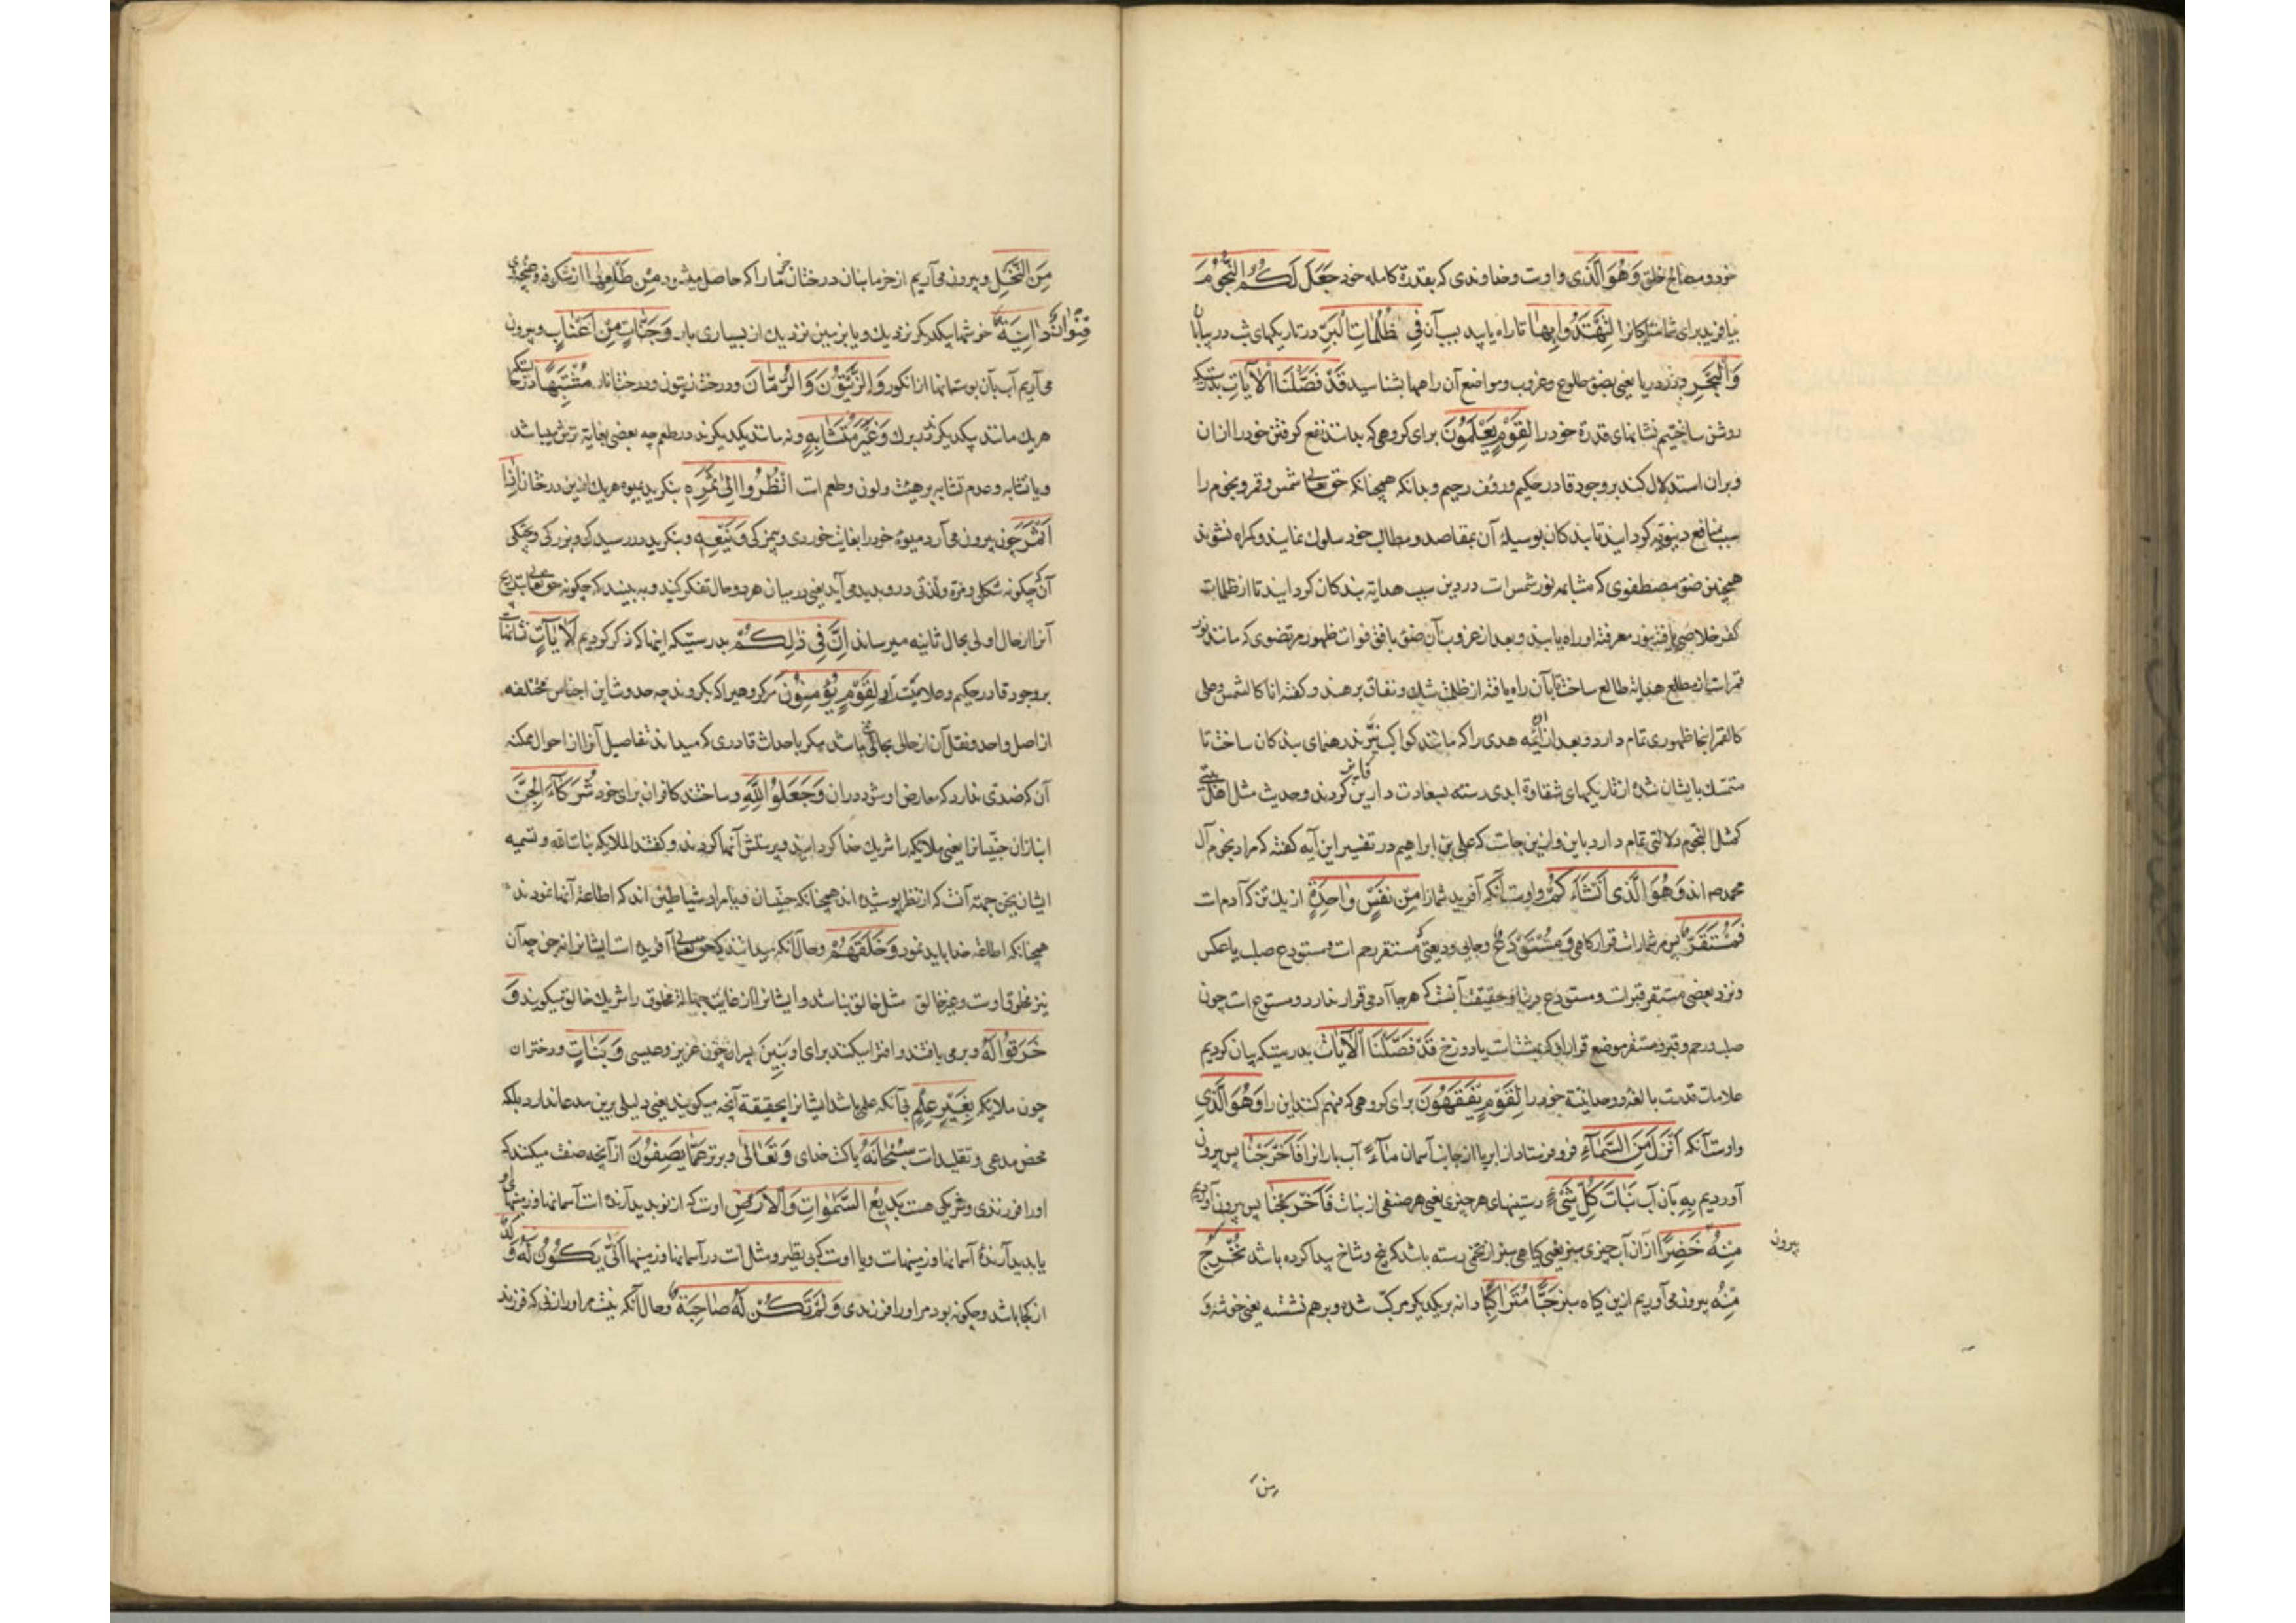 خود و مصالح خلق وَهُوَ الَّذی و اوست و خداوندی که بقدرة کامله خود جَعَلَ لَكُمُ النُّجُومَ
بیافرید برای شما ستارکانرا لِتَهْتَدُوا بِهَا تا راه یابید بسبب آن فِی ظُلُمَاتِ الْبَرِّ در تاریکیهای شب در بیابان
وَالْبَحْرِ و در دریا یعنی بضوء طلوع و غروب و مواضع آن راهها بشناسید قَدْ فَصَّلْنَا الْآيَاتِ بدرستیکه
روشن ساختیم نشانهای قدرة خود را لِقَوْمٍ يَعْلَمُونَ برای کروهی که بدانند نفع کرفتن خود را از ان
و بران استدلال کند بر وجود قادر حکیم و رؤف رحیم و بدانکه همچنانکه حق تعالی شمس و قمر و نجوم را
سبب منافع دنیویه کردانید تا بندکان بوسیلۀ آن بمقاصد و مطالب خود سلوک نمایند و کمراه نشوند
همچنین ضوء مصطفوی که مشابه نور شمس است در دین سبب هدایة بندکان کردانید تا از ظلمات
کفر خلاصی یافته بنور معرفة او راه یابند و بعد از غروب آن ضوء بافق فوات ظهور مرتضوی که مانند نور
قمر است از مطلع هدایة طالع ساخت تا بآن راه یافته از ظلمت شک و نفاق برهند و کفته انا کالشمس و علی
کالقمر اینجا ظهوری تمام دارد و بعد از ان ائمه هدی را که مانند کواکب نیّرند رهنمای بندکان ساخت تا
متمسک بایشان شده از تاریکیهای شقاوة ابدی رسته بسعادت دارین فایز کردند و حدیث مثل اهل بیتی
کمثل النجوم دلالتی تمام دارد باین و ازین جاست که علی بن ابراهیم در تفسیر این آیه کفته که مراد بنجوم آل
محمد ص اند وَهُوَ الَّذی أَنْشَاَكُمْ و اوست آنکه آفرید شما را مِنْ نَفْسٍ وَاحِدَةٍ از یک تن که آدم است
فَمُسْتَقَرٌّ پس مر شما راست قرارکاهی وَمُسْتَوْدَعٌ و جای ودیعتی که مستقر رحم است و مستودع صلب یا عکس
و نزد بعضی مستقر قبر است و مستودع دنیا و حقیقت آنست که هر جا آدمی قرار ندارد و مستودع است چون
صلب و رحم و قبر و مستقر موضع قرار او که بهشت است یا دوزخ قَدْ فَصَّلْنَا الْآيَاتِ بدرستیکه بیان کردیم
علامات قدرت بالغه و وحدانیة خود را لِقَوْمٍ يَفْقَهُونَ برای کروهی که فهم کنند این را وَهُوَ الَّذی
و اوست آنکه أَنْزَلَ مِنَ السَّمَآءِ فرو فرستاد از ابر یا از جانب آسمان مَآءً آب باران را فَاَخْرَجْنَا پس بیرون
آوردیم بِهِ بآن آب نَبَاتَ كُلِّ شَیْءٍ رستنیهای هر چیزی یعنی هر صنفی از نبات فَاَخْرَجْنَا پس بیرون آوردیم
مِنْهُ خَضِرًا از آن آب چیزی سبز یعنی کیاهی سبز از تخمی رسته باشد که بیخ و شاخ پیدا کرده باشد نُخْرِجُ
بیرون
مِنْهُ بیرون می آوریم ازین کیاه سبز حَبًّا مُتَرَاکِبًا دانه بر یکدیکر مرکب شده و بر هم نشسته یعنی خوشه وَ
من
مِنَ النَّخْلِ و بیرون می آریم از خرما بنان درختان خرما را که حاصل میشود مِنْ طَلْعِهَا از شکوفه و غنچهای
قِنْوَانٌ دَانِیَةٌ خوشها بیکدیکر نزدیک و یا بزمین نزدیک از بسیاری بار وَجَنَّاتٍ مِنْ اَعْنَابٍ و بیرون
می آریم آب بآن بوستانها از انکور وَالزَّيْتُونَ وَالرُّمَّانَ و درخت زیتون و درخت انار مُشْتَبِهًا
هر یک مانند یکدیکر در برک وَغَيْرَ مُتَشَابِهٍ و نه مانند یکدیکرند در طعم چه بعضی بغایة ترش میباشد
و یا تشابه و عدم تشابه بر هیئت و لون و طعم است اُنْظُرُوا اِلٰی ثَمَرِهِ بنکرید بمیوه هر یک ازین درختان اِذَا
اَثْمَرَ چون بیرون می آرد میوۀ خود را بغایت خوردی و بیمزکی وَيَنْعِهِ و بنکرید در رسیدکی و بزرکی و پختکی
آن که چکونه شکلی و مزه و لذتی درو پدید می آید یعنی در میان هر دو حال تفکر کنید و به بینید که چکونه حق تعالی بتدریج
آنرا از حال اولی بحال ثانیه میرساند اِنَّ فِی ذٰلِكُمْ بدرستیکه اینها که ذکر کردیم لَاٰیَاتٍ نشانهاست
بر وجود قادر حکیم و علامتست لِقَوْمٍ يُؤْمِنُونَ مر کروهیرا که بکروند چه حدوث این اجناس مختلفه
از اصل واحد و نقل آن از حالی بحالی نمی باشد مکر باحداث قادری که میداند تفاصیل آنرا از احوال ممکنه
آن که ضدی ندارد که معارض او شود دران وَجَعَلُوا لِلّٰهِ و ساختند کافران برای خود شُرَكَآءَ الْجِنَّ
انبازان جنیانرا یعنی ملایکه را شریک خدا کردانیدند و پرستش آنها کردند و کفتند الملائکه بنات الله و تسمیه
ایشان بجن جهة آنست که از نظر پوشیده اند همچنانکه جنیان و یا مراد شیاطین اند که اطاعة آنها نمودند
همچنانکه اطاعة خدا باید نمود وَخَلَقَهُمْ و حال آنکه میدانند که حق تعالی آفریده است ایشانرا نه جن چه آن
نیز مخلوق اوست و غیر خالق مثل خالق نباشد و ایشانرا از غایت جهالة مخلوق را شریک خالق میکویند وَ
خَرَقُوا لَهُ و بر می بافتند و افترا میکنند برای او بَنِینَ پسران چون عزیر و عیسی وَبَنَاتٍ و دختران
چون ملائکه بِغَيْرِ عِلْمٍ بی آنکه علمی باشد ایشانرا بحقیقة آنچه میکویند یعنی دلیلی برین مدعا ندارد بلکه
محض مدعی و تقلید است سُبْحَانَهُ پاکست خدای وَتَعَالٰی و برتر عَمَّا يَصِفُونَ از آنچه صفت میکنند که
او را فرزندی و شریکی هست بَدِیعُ السَّمٰوَاتِ وَالْاَرْضِ اوست که از نو پدید آرنده است آسمانها و زمینها
یا پدید آرندۀ آسمانها و زمینهاست و یا اوست که بی نظیر و مثل است در آسمانها و زمینها اَنّٰی يَكُونُ لَهُ وَلَدٌ
از کجا باشد و چکونه بود مر او را فرزندی وَلَمْ تَكُنْ لَهُ صَاحِبَةٌ و حال آنکه نیست مر او را زنی که فرزند